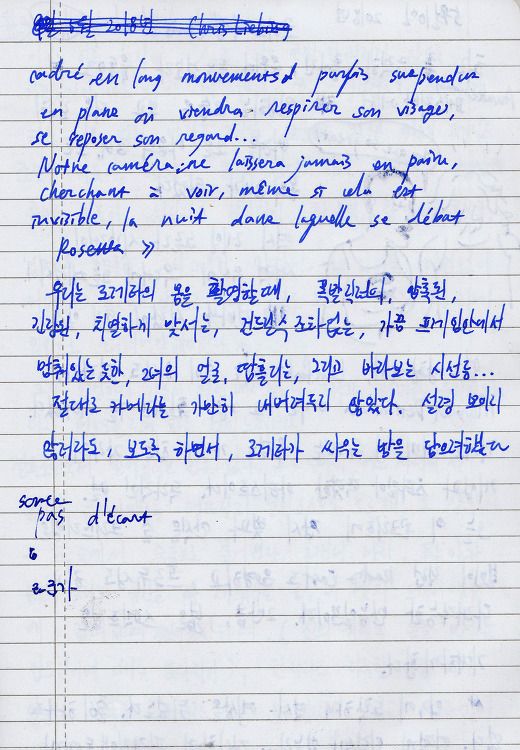 5월 2018년 Chris
cadré en long mouvements parfois suspendus
en plans où viendra respirer son visage,
se reposer son regard...
Notre caméra ne laissera jamais en paix,
cherchant à voir, même si cela est
invisible, la nuit dans laquelle se débat
Rosetta »
우리는 로제타의 몸을 촬영할 때, 폭발직전의, 압축된,
긴장된, 치열하게 맞서는, 건드릴 수 조차 없는, 가끔 프레임안에서
멈춰있는 듯한, 그녀의 얼굴, 땀흘리는, 그리고 바라보는 시선을...
절대로 카메라는 가만히 내버려두지 않았다. 설령 보이지
않더라도, 보도록 하면서, 로제타가 싸우는 밤을 담으려했다
source
pas d'écart